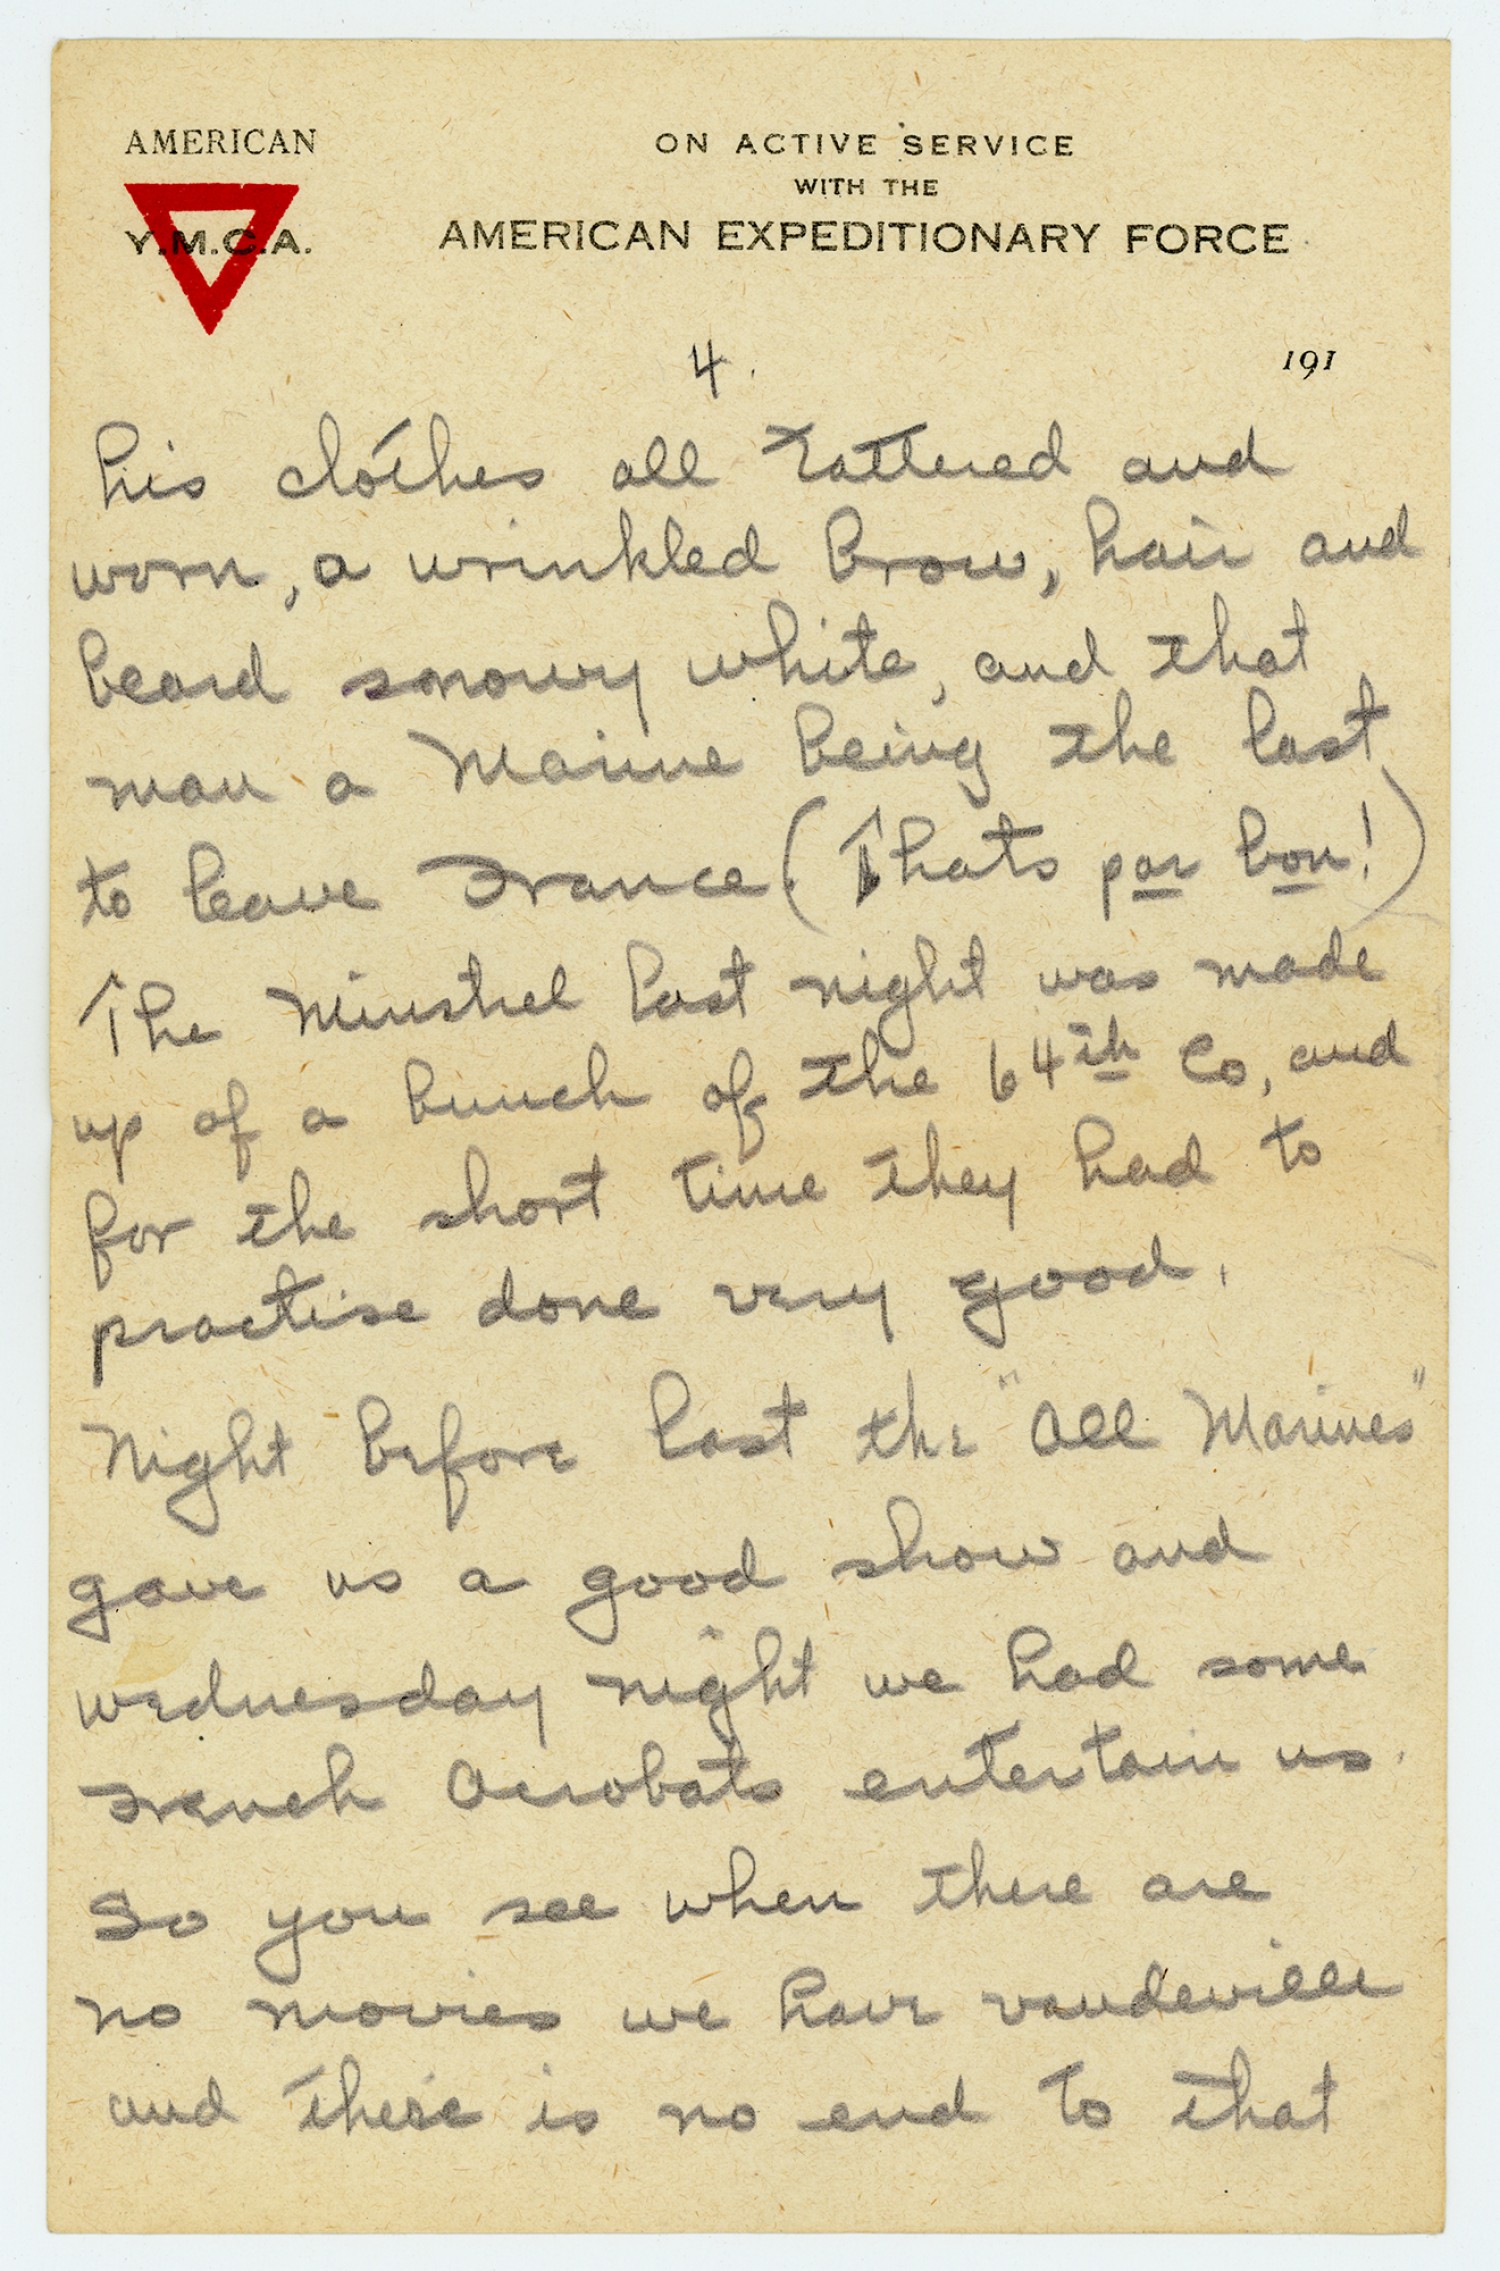 AMERICAN
Y.M.C.A.
ON ACTIVE SERVICE
WITH THE
AMERICAN EXPEDITIONARY FORCE
4.
191
his clothes all tattered and
worn, a wrinkled brow, hair and
beard snowy white, and that
man a Marine being the last
to leave France (Thats par bon!)
The Minstrel last night was made
up of a bunch of the 64th Co, and
for the short time they had to
practise done very good.
Night before last the "All Marines"
gave us a good show and
wednesday night we had some
French Acrobats entertain us.
So you see when there are
no movies we have vaudeville
and there is no end to that